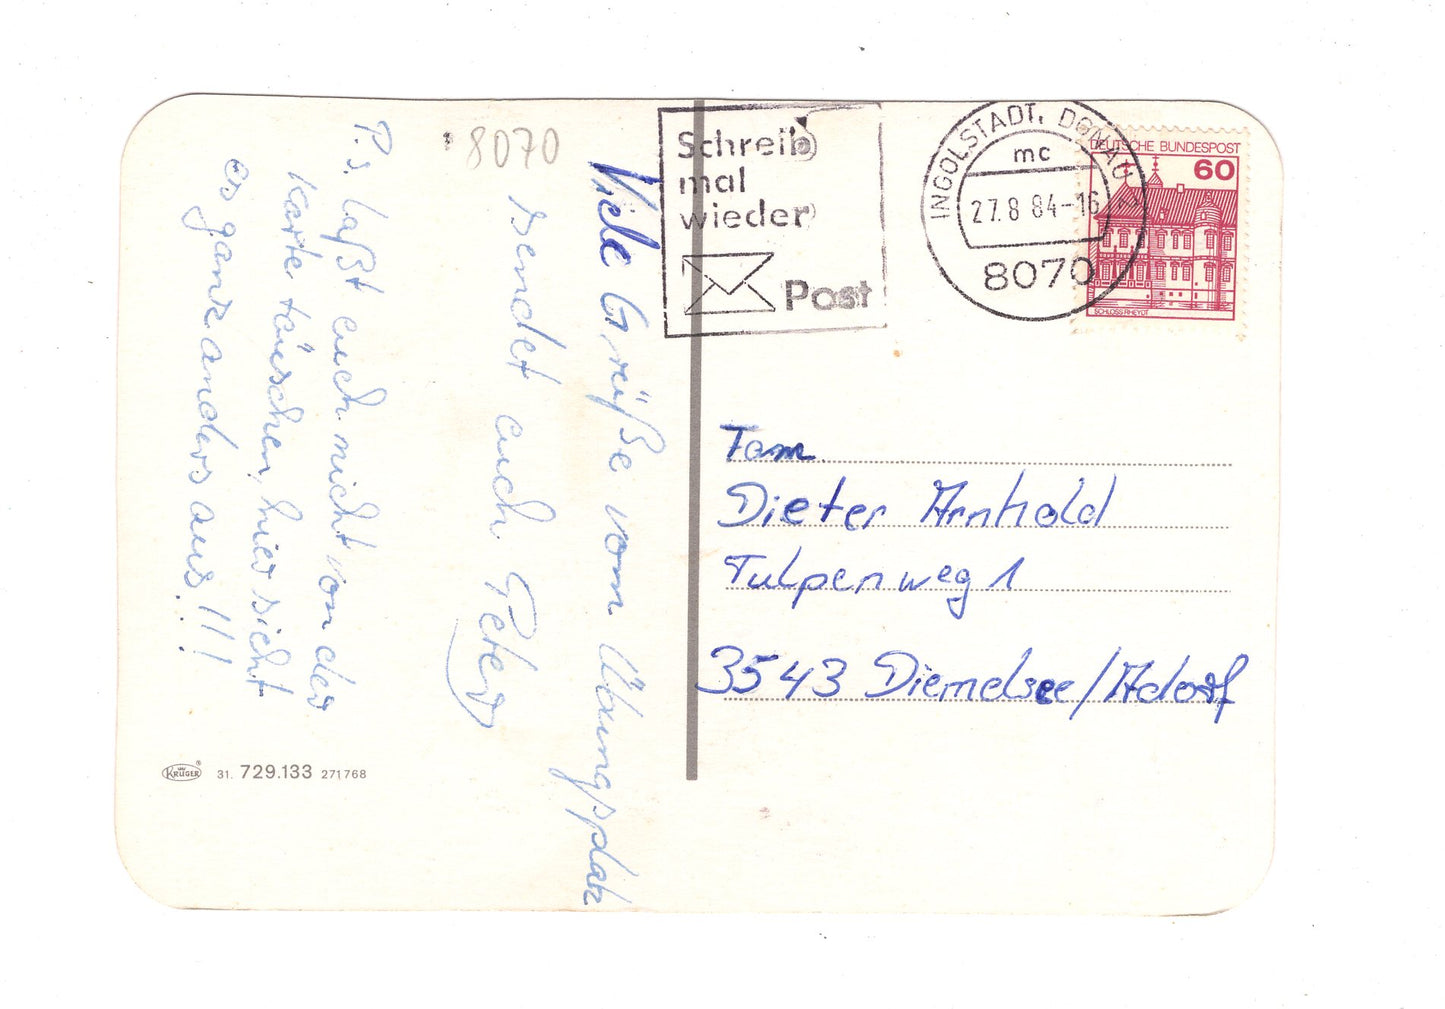 8070
Viele Grüße vom Übungsplatz
sendet euch Peter
P.s. laßt euch nicht von der
Karte täuschen, hier sieht
es ganz anders aus!!!
KRÜGER
31. 729.133 271768
Schreib
mal
wieder
Post
INGOLSTADT, DONAU
mc
27.8.84-16
8070
DEUTSCHE BUNDESPOST
60
SCHLOSS RHEYDT
Fam.
Dieter Arnhold
Tulpenweg 1
3543 Diemelsee/Adorf